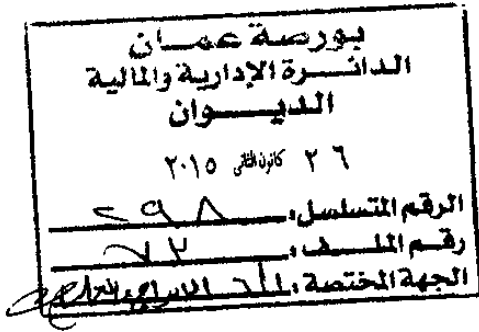 بورصة عمان
الدائرة الإدارية والمالية
الديوان
٢٦ كانون الثاني ٢٠١٥
الرقم المتسلسل: ٢٩٨
رقم الملف:
الجهة المختصة: